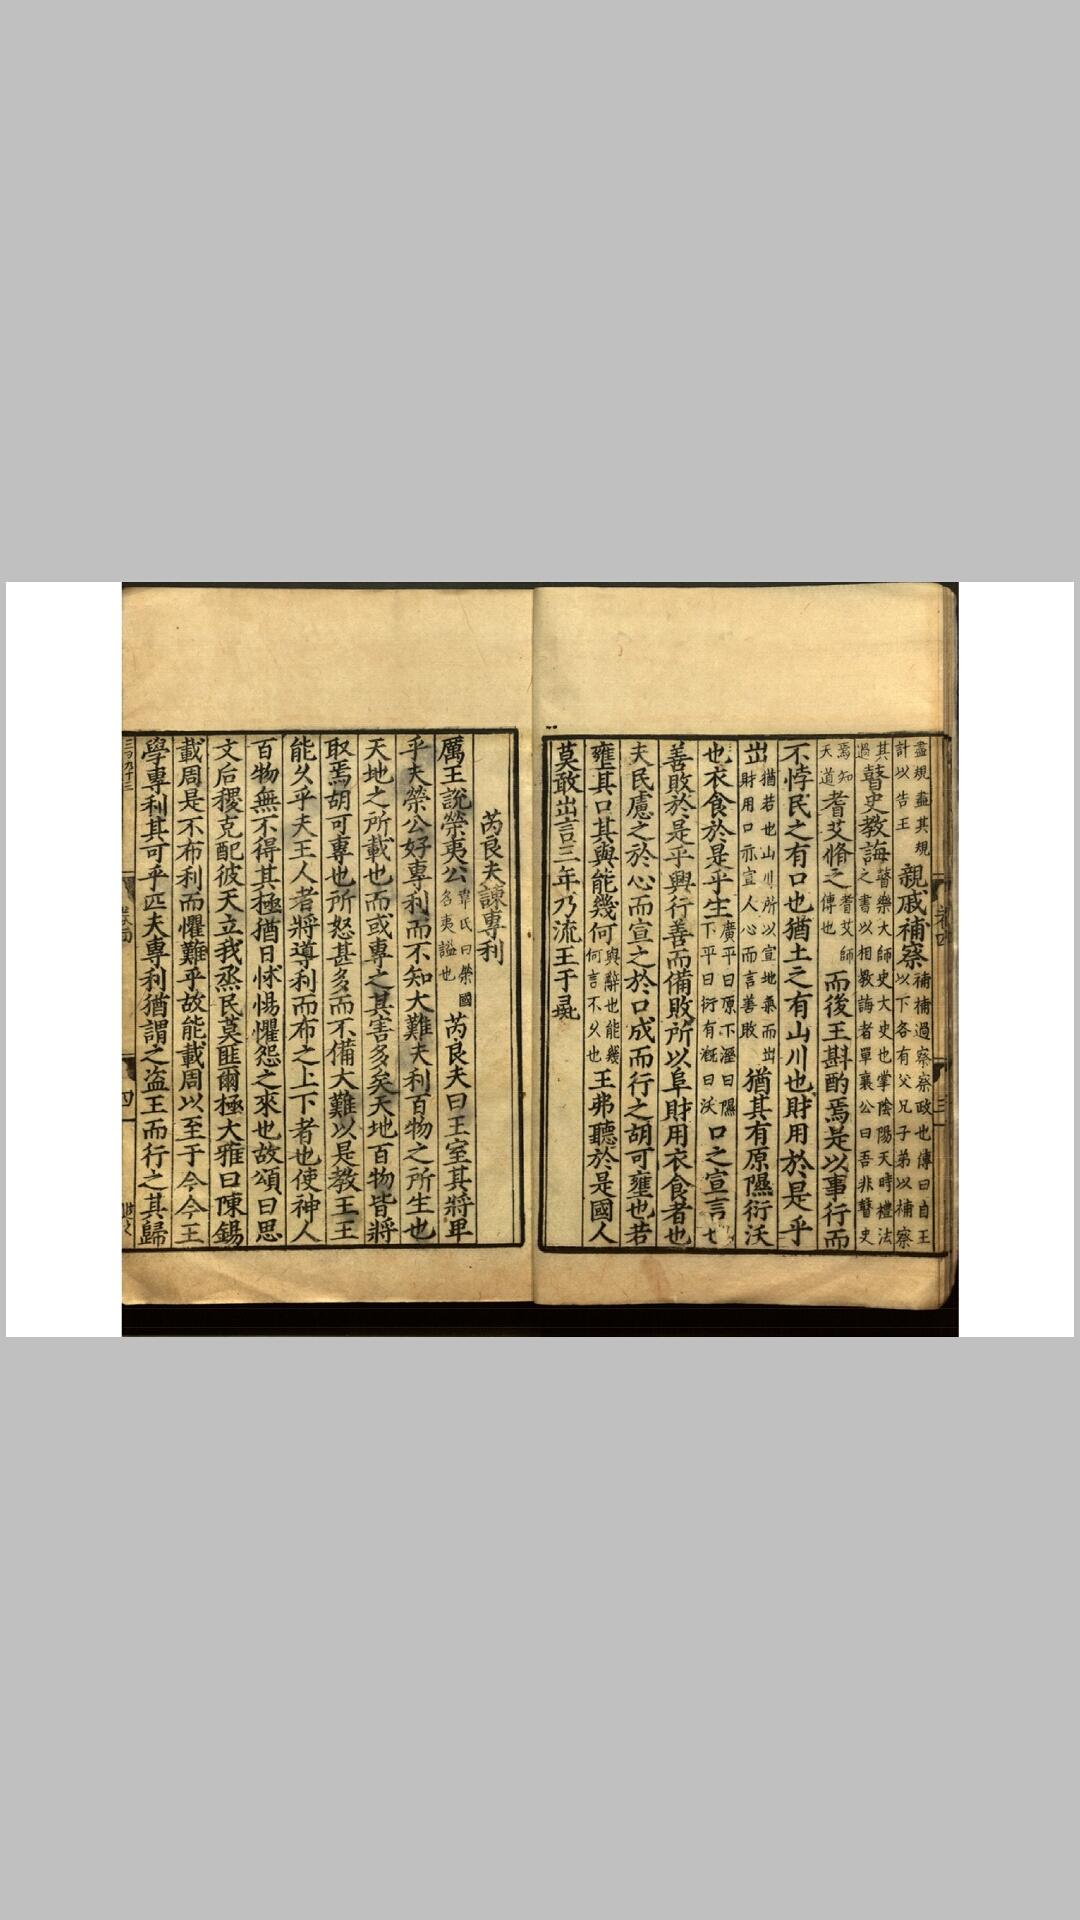 盡規盡其規計以告王親戚補察補補過察察政也傳曰自王以下各有父兄子弟以補察
其過瞽史教誨瞽樂大師史大史也掌陰陽天時禮法之書以相教誨者單襄公曰吾非瞽史
焉知天道耆艾脩之耆艾師傅也而後王斟酌焉是以事行而
不悖民之有口也猶土之有山川也財用於是乎
出猶若也山川所以宣地氣而出財用口亦宣人心而言善敗猶其有原隰衍沃
也衣食於是乎生廣平曰原下溼曰隰下平曰衍有溉曰沃口之宣言也
善敗於是乎興行善而備敗所以阜財用衣食者也
夫民慮之於心而宣之於口成而行之胡可壅也若
壅其口其與能幾何與辭也能幾何言不久也王弗聽於是國人
莫敢出言三年乃流王于彘
卷四
三
芮良夫諫專利
厲王說榮夷公韋氏曰榮國名夷謚也芮良夫曰王室其將卑
乎夫榮公好專利而不知大難夫利百物之所生也
天地之所載也而或專之其害多矣天地百物皆將
取焉胡可專也所怒甚多而不備大難以是教王王
能久乎夫王人者將導利而布之上下者也使神人
百物無不得其極猶日怵惕懼怨之來也故頌曰思
文后稷克配彼天立我烝民莫匪爾極大雅曰陳錫
載周是不布利而懼難乎故能載周以至于今今王
學專利其可乎匹夫專利猶謂之盜王而行之其歸
三百九十三
卷四
四